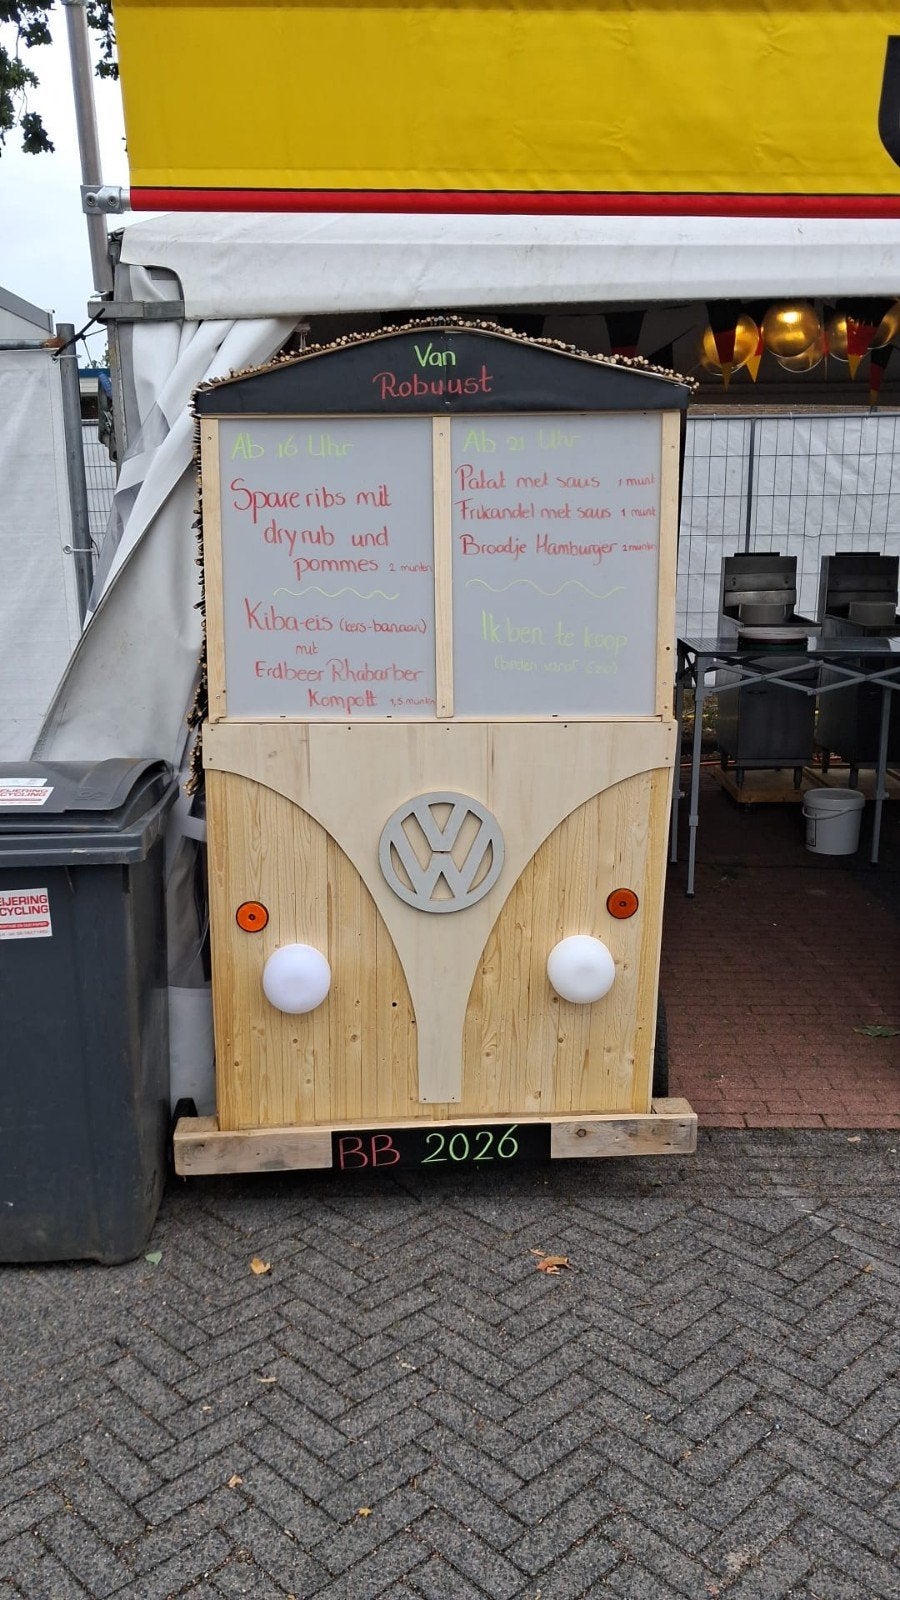 Van
Robuust
Ab 16 Uhr
Spare ribs mit
dry rub und
pommes 2 munten
Kiba-eis (kers-banaan)
mit
Erdbeer Rhabarber
Kompott 1,5 munten
Ab 21 Uhr
Patat met saus 1 munt
Frikandel met saus 1 munt
Broodje Hamburger 2 munten
Ik ben te koop
(bieden vanaf €20)
VW
BB 2026
EIJERING
CYCLING